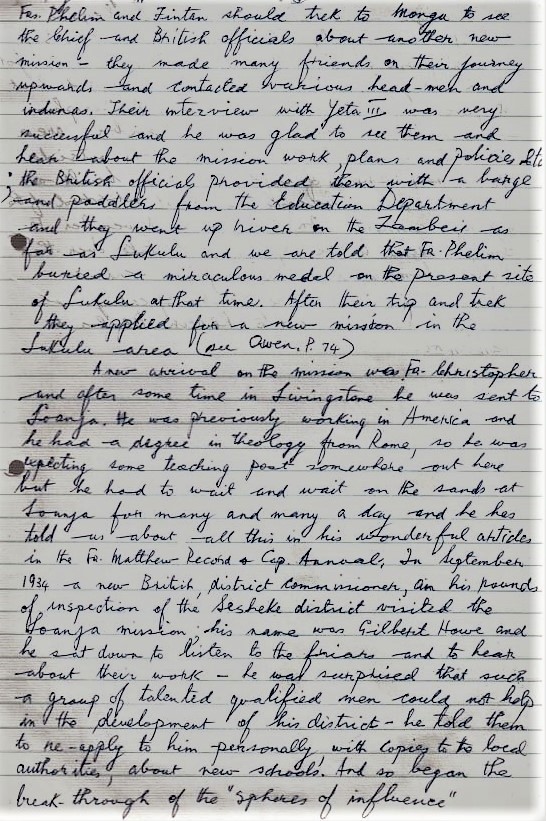 Frs. Phelim and Fintan should trek to Mongu to see
the Chief and British officials about another new
mission - they made many friends on their journey
upwards and contacted various head-men and
indunas. Their interview with Yeta III was very
successful and he was glad to see them and
hear about the mission work, plans and policies etc
the British officials provided them with a barge
and paddlers from the Education Department
and they went up river on the Zambezi as
far as Lukulu and we are told that Fr. Phelim
buried a miraculous medal on the present site
of Lukulu at that time. After their trip and trek
they applied for a new mission in the
Lukulu area (see Owen, P. 74)
A new arrival on the mission was Fr. Christopher
and after some time in Livingstone he was sent to
Loanja. He was previously working in America and
he had a degree in theology from Rome, so he was
expecting some teaching post somewhere out here
but he had to wait and wait on the sands at
Loanja for many and many a day and he has
told us about all this in his wonderful articles
in the Fr. Matthew Record & Cap. Annual. In September
1934 a new British, district commissioner, on his rounds
of inspection of the Sesheke district visited the
Loanja mission; his name was Gilbert Howe and
he sat down to listen to the friars and to hear
about their work - he was surprised that such
a group of talented qualified men could not help
in the development of his district - he told them
to re-apply to him personally, with copies to to local
authorities, about new schools. And so began the
break-through of the "spheres of influence"